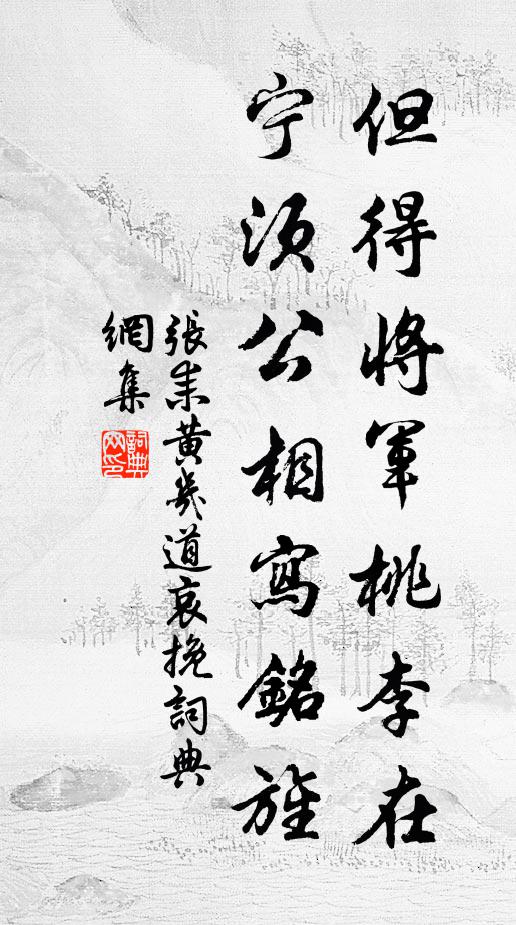 但得將軍桃李在
宁須公相寫銘旌
張耒黃幾道哀挽詞典
網集
詞典
网印